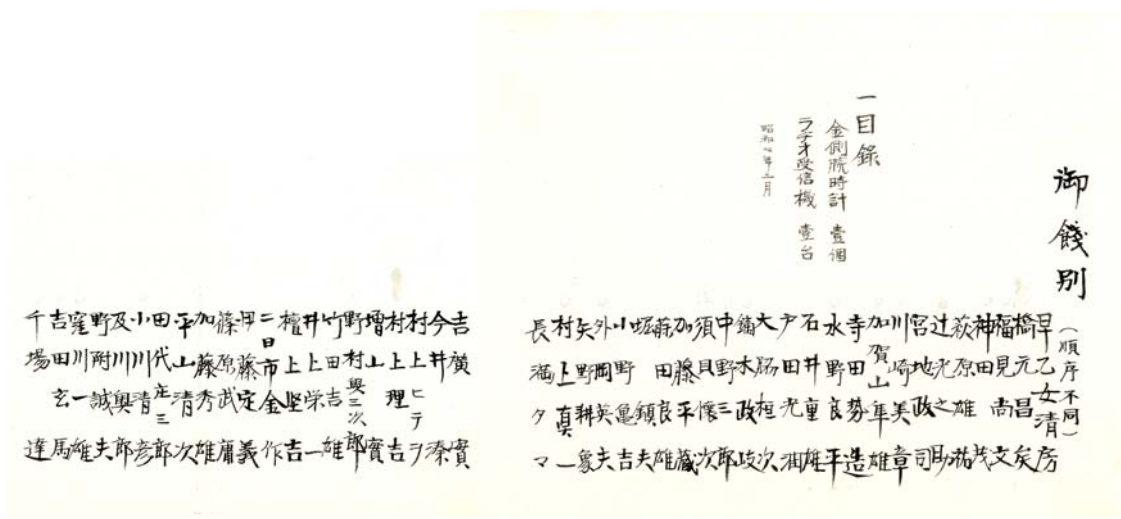 御餞別
一目録
金側腕時計 壹個
ラヂオ受信機 壹台
昭和七年二月
(順序不同)
早乙女清房
橋元昌矣
福見尚文
神田茂
萩原雄祐
辻光之助
宮地政司
川崎美章
加賀山隼雄
寺田勢造
水野良平
石井重雄
戸田光潤
大脇桓次
鏑木政岐
中野三郎
須貝懐次
加藤平蔵
莊田良雄
堀鎮夫
小野亀吉
外岡英夫
矢野耕
村上真一
長満タマ
吉廣實
今井湊
村上ヒデヲ
村上理吉
増山實
野村與三次郎
竹田吉雄
井上栄一
檀上堅吉
二日市金作
伊藤定義
篠原武庸
加藤秀雄
平山清次
田代庄三郎
小川清彦
及川奥郎
野附誠夫
窪川一雄
吉田玄馬
千場達